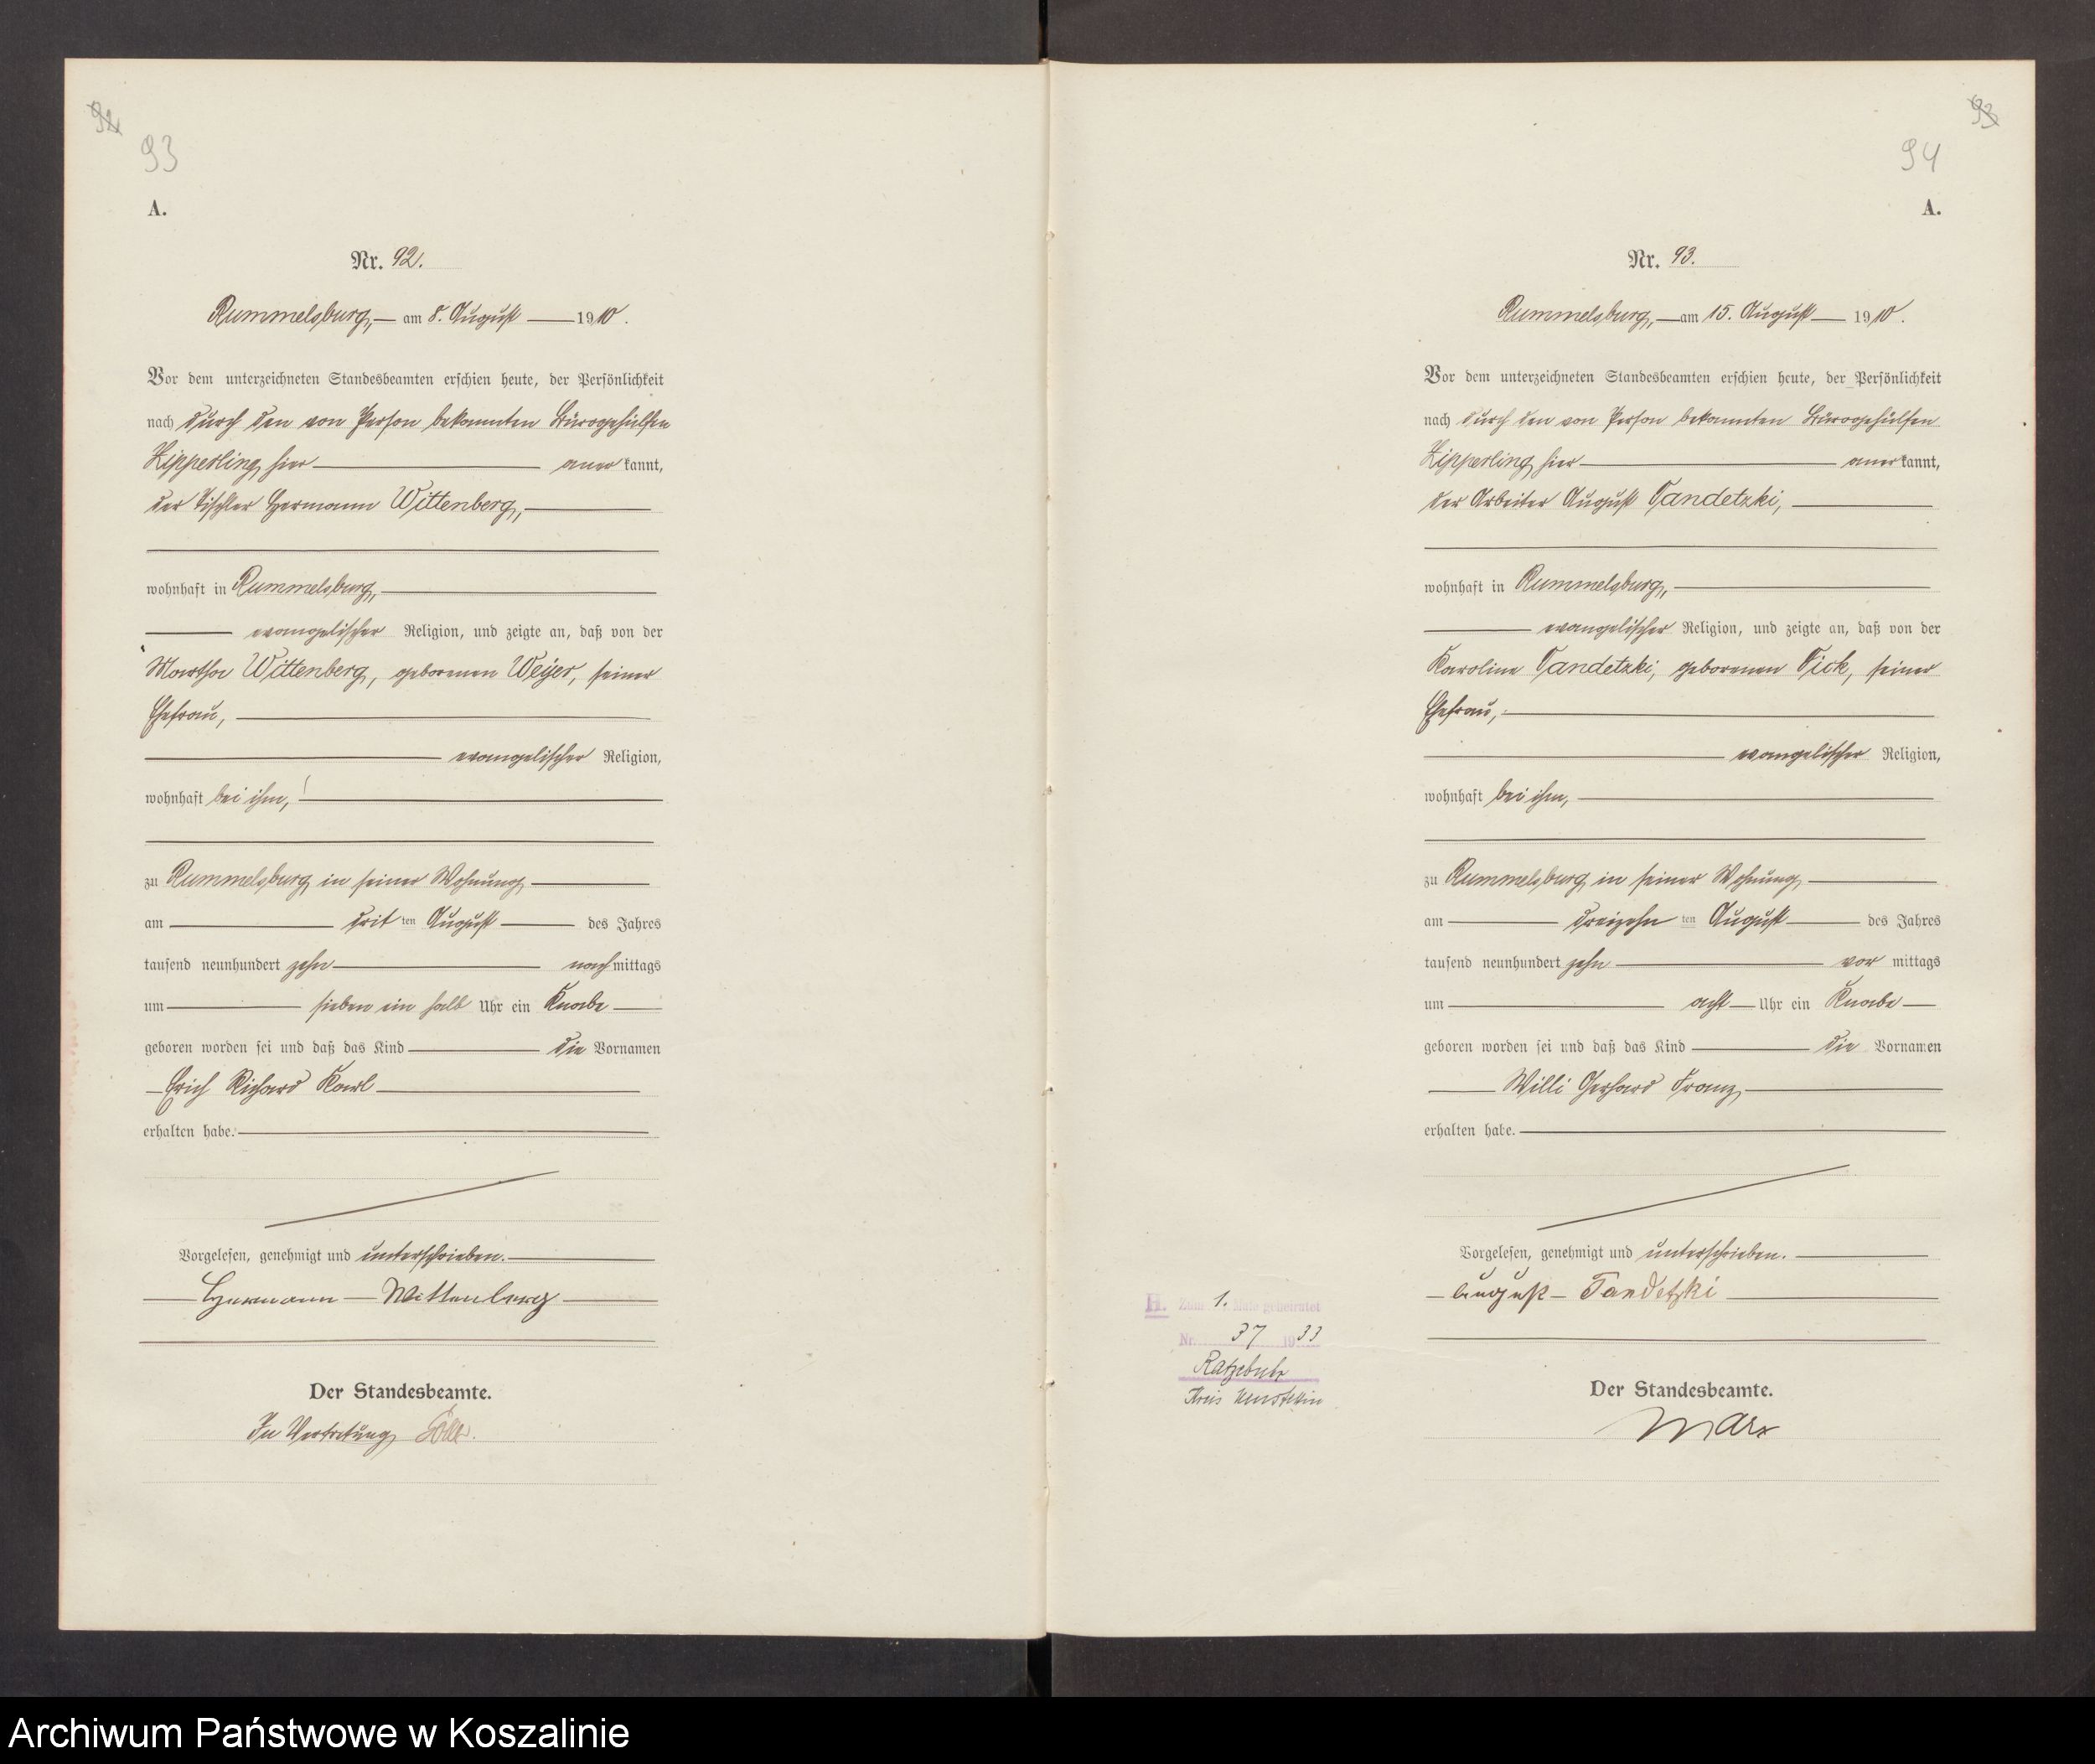 92
93
A.
Nr. 92.
Rummelsburg, am 8. August 1910.
Vor dem unterzeichneten Standesbeamten erschien heute, der Persönlichkeit
nach durch den von Person bekannten Bürogehülfen
Zipperling hier anerkannt,
der Tischler Hermann Wittenberg,
wohnhaft in Rummelsburg,
evangelischer Religion, und zeigte an, daß von der
Martha Wittenberg, geborenen Weyer, seiner
Ehefrau,
evangelischer Religion,
wohnhaft bei ihm,
zu Rummelsburg in seiner Wohnung
am dritten August des Jahres
tausend neunhundert zehn nachmittags
um sieben ein halb Uhr ein Knabe
geboren worden sei und daß das Kind die Vornamen
Erich Richard Karl
erhalten habe.
Vorgelesen, genehmigt und unterschrieben.
Hermann Wittenberg
Der Standesbeamte.
In Vertretung
93
94
A.
Nr. 93.
Rummelsburg, am 15. August 1910.
Vor dem unterzeichneten Standesbeamten erschien heute, der Persönlichkeit
nach durch den von Person bekannten Bürogehülfen
Zipperling hier anerkannt,
der Arbeiter August Tandetzki,
wohnhaft in Rummelsburg,
evangelischer Religion, und zeigte an, daß von der
Karoline Tandetzki, geborenen Pick, seiner
Ehefrau,
evangelischer Religion,
wohnhaft bei ihm,
zu Rummelsburg in seiner Wohnung
am dreizehnten August des Jahres
tausend neunhundert zehn vormittags
um acht Uhr ein Knabe
geboren worden sei und daß das Kind die Vornamen
Willi Gerhard Franz
erhalten habe.
Vorgelesen, genehmigt und unterschrieben.
August Tandetzki
Der Standesbeamte.
Marx
H. Zum 1. Male geheiratet
Nr. 37 1933
Ratzebuhr
Kreis Neustettin
Archiwum Państwowe w Koszalinie